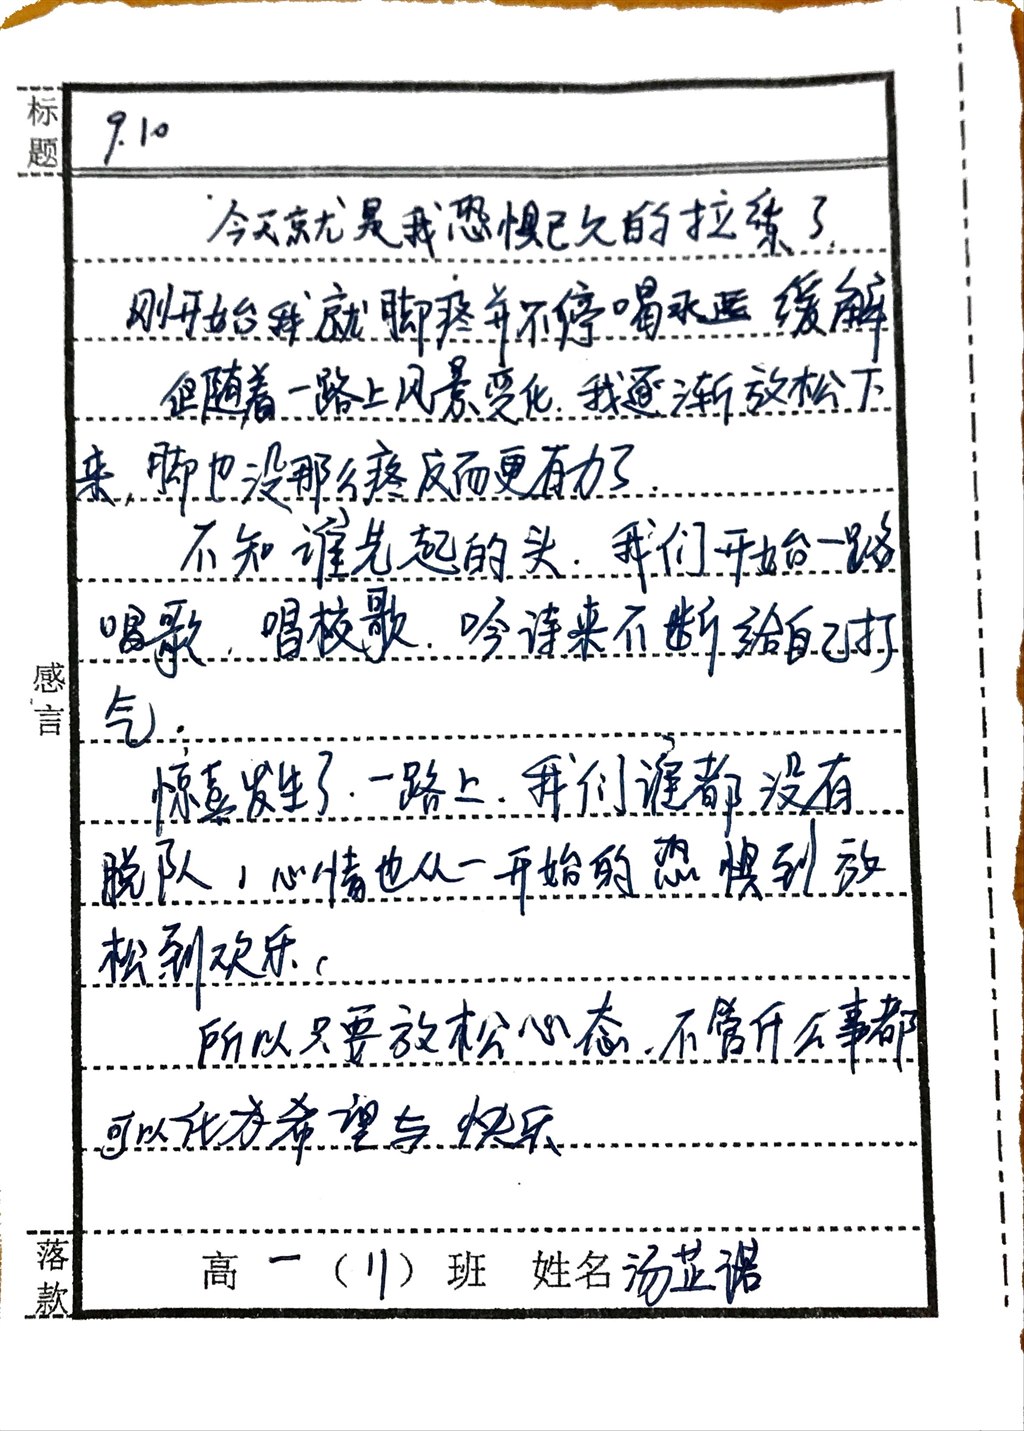 标题
9.10
今天就是我恐惧已久的拉练了.
刚开始我就脚疼并不停喝水 缓解
但随着一路上风景变化.我逐渐放松下
来,脚也没那么疼反而更有力了.
不知谁先起的头.我们开始一路
唱歌.唱校歌.吟诗来不断给自己打
气.
惊喜发生了.一路上.我们谁都没有
脱队,心情也从一开始的恐惧到放
松到欢乐,
所以只要放松心态.不管什么事都
可以化为希望与快乐
感言
落款
高一(11)班 姓名汤芷诺